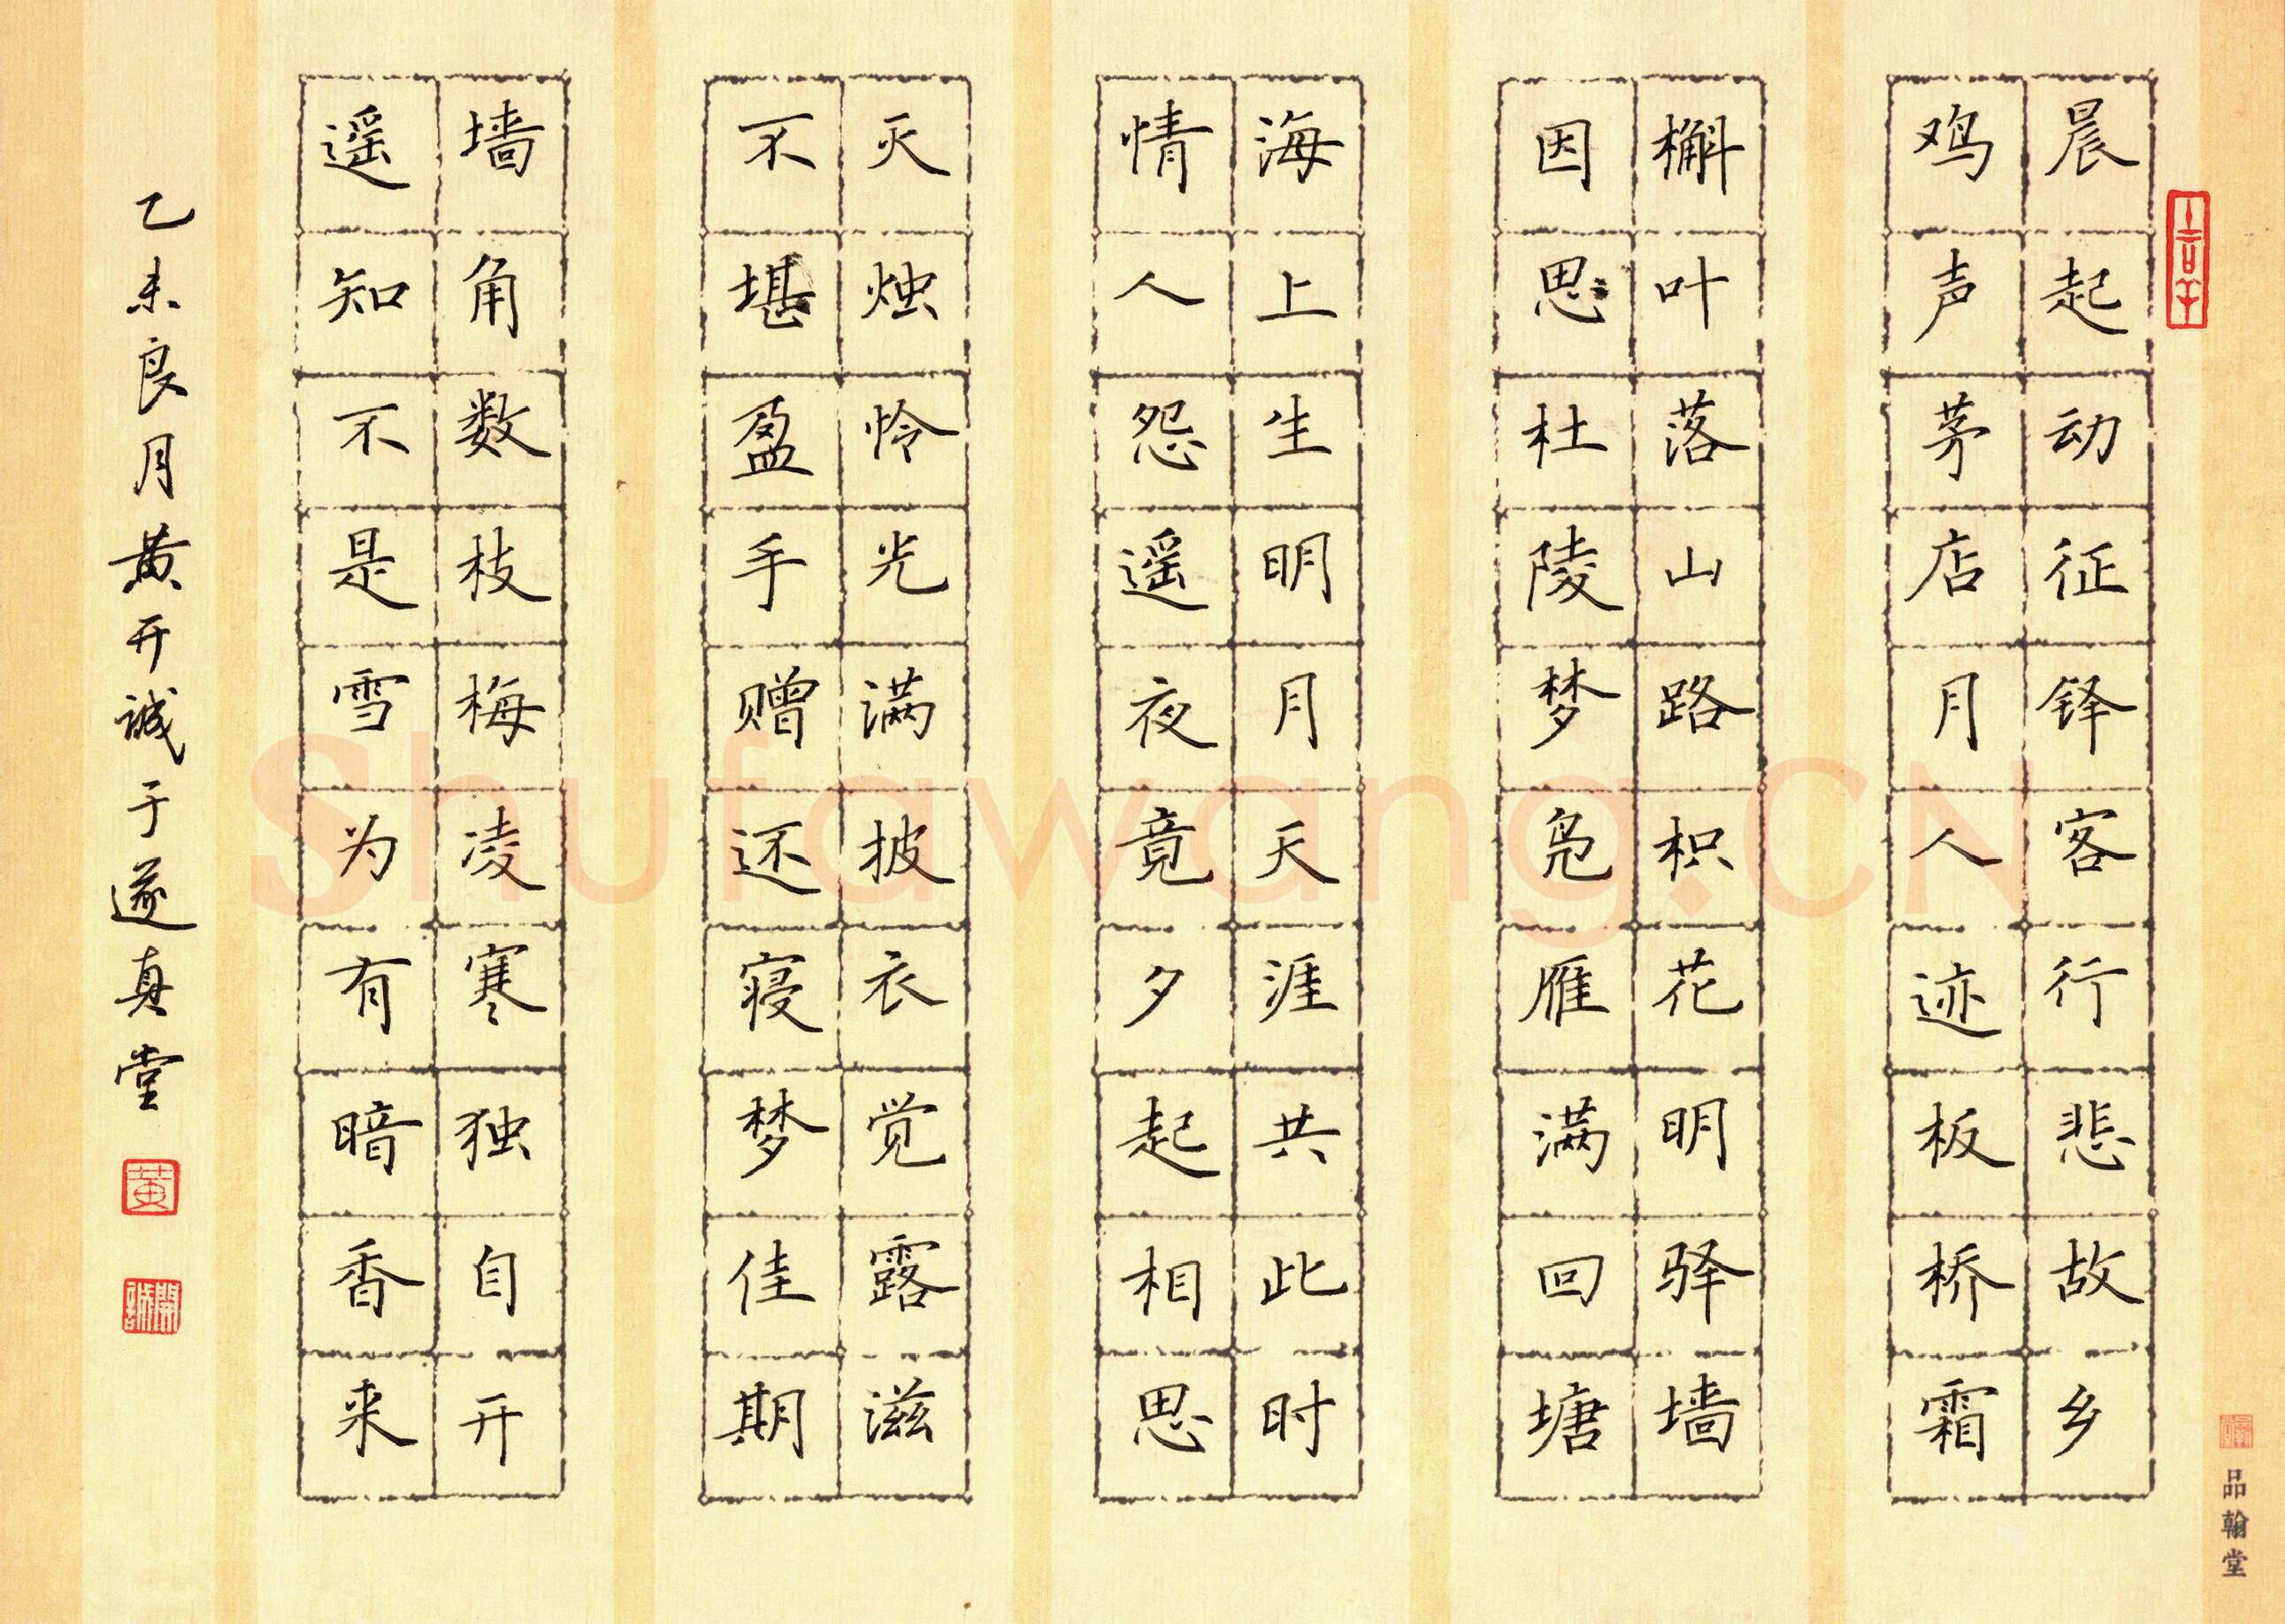 晨起动征铎客行悲故乡
鸡声茅店月人迹板桥霜
槲叶落山路枳花明驿墙
因思杜陵梦凫雁满回塘
海上生明月天涯共此时
情人怨遥夜竟夕起相思
灭烛怜光满披衣觉露滋
不堪盈手赠还寝梦佳期
墙角数枝梅凌寒独自开
遥知不是雪为有暗香来
乙未良月黄开誠于遂真堂
黄
開誠
品翰堂
Shufawang.CN